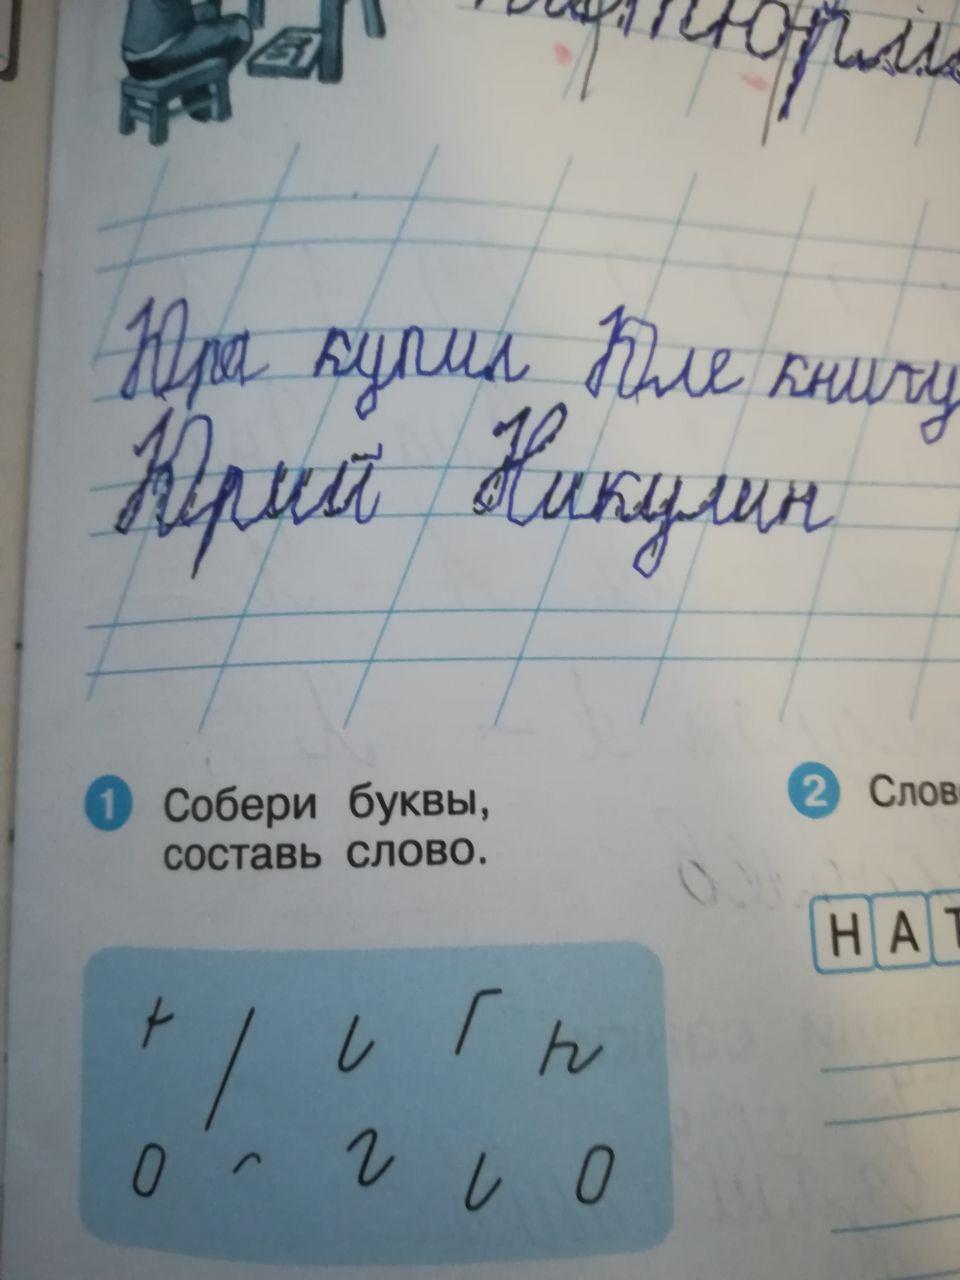 Юра купил Юле книгу
Юрий Никулин
1 Собери буквы,
составь слово.
2
НА